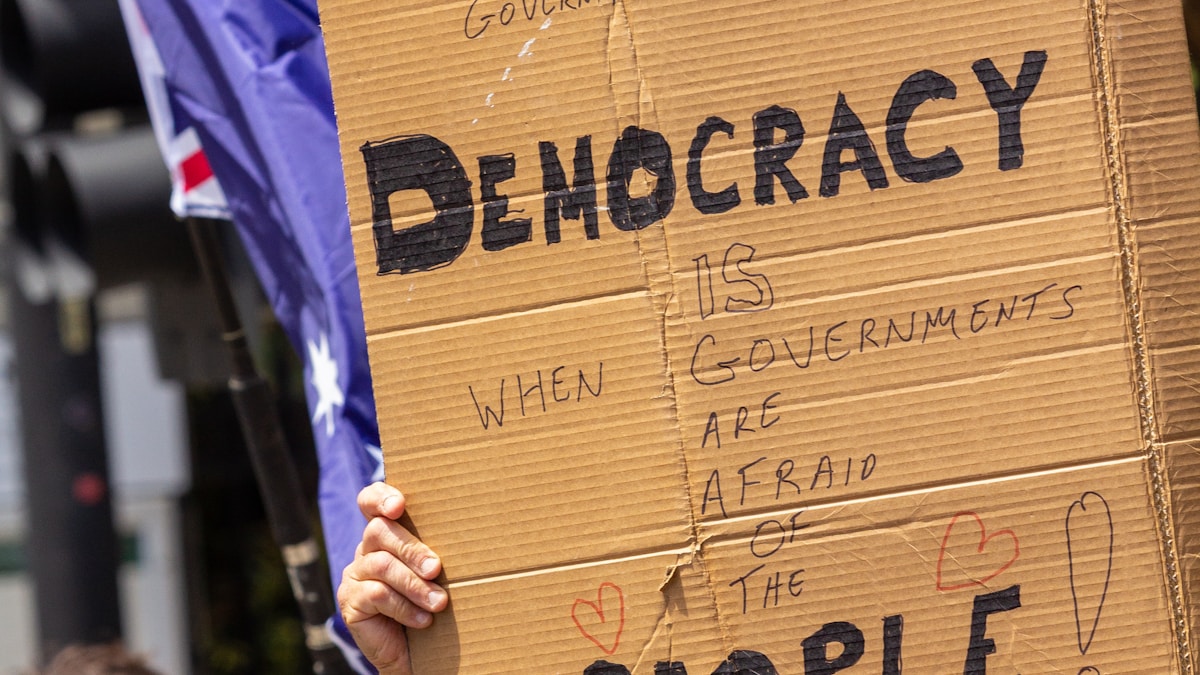 DEMOCRACY
IS
WHEN GOVERNMENTS
ARE
AFRAID
OF
THE
PEOPLE!